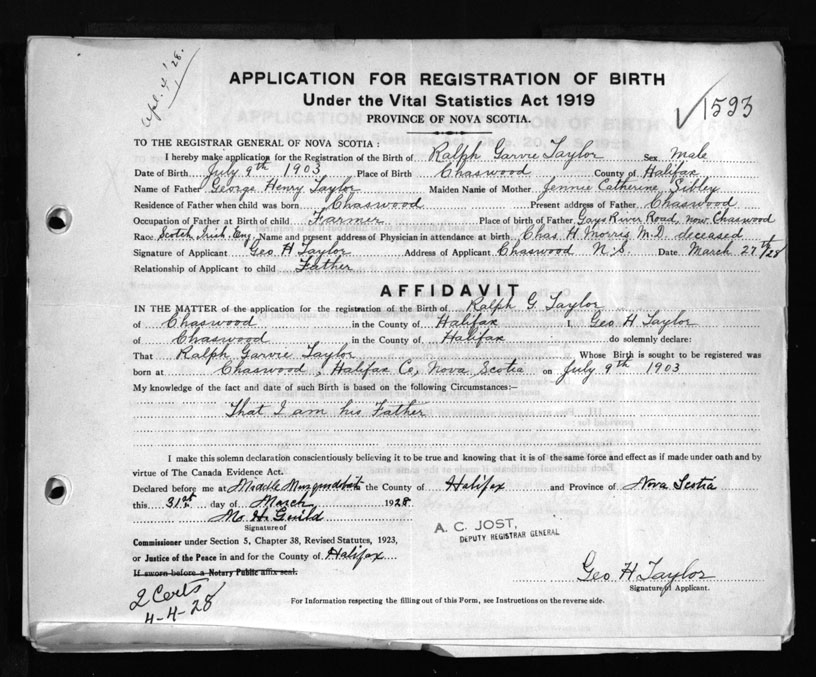 Apl. 4 '28.
APPLICATION FOR REGISTRATION OF BIRTH
Under the Vital Statistics Act 1919
PROVINCE OF NOVA SCOTIA.
1593
TO THE REGISTRAR GENERAL OF NOVA SCOTIA :
I hereby make application for the Registration of the Birth of Ralph Garvie Taylor Sex Male
Date of Birth July 9th 1903 Place of Birth Chaswood County of Halifax
Name of Father George Henry Taylor Maiden Name of Mother Jennie Catherine Sibley
Residence of Father when child was born Chaswood Present address of Father Chaswood
Occupation of Father at Birth of child Farmer Place of birth of Father Gays River Road, now Chaswood
Race Scotch Irish Eng Name and present address of Physician in attendance at birth Chas H Morris M.D. deceased
Signature of Applicant Geo H Taylor Address of Applicant Chaswood N.S. Date March 27th/28
Relationship of Applicant to child Father
AFFIDAVIT
IN THE MATTER of the application for the registration of the Birth of Ralph G Taylor
of Chaswood in the County of Halifax I, Geo H Taylor
of Chaswood in the County of Halifax do solemnly declare:
That Ralph Garvie Taylor Whose Birth is sought to be registered was
born at Chaswood, Halifax Co, Nova Scotia on July 9th 1903
My knowledge of the fact and date of such Birth is based on the following Circumstances:—
That I am his Father
I make this solemn declaration conscientiously believing it to be true and knowing that it is of the same force and effect as if made under oath and by
virtue of The Canada Evidence Act.
Declared before me at Middle Musquodoboit the County of Halifax and Province of Nova Scotia
this 31st day of March 1928
H. Guild
Signature of
A. C. JOST,
DEPUTY REGISTRAR GENERAL
Commissioner under Section 5, Chapter 38, Revised Statutes, 1923,
or Justice of the Peace in and for the County of Halifax
If sworn before a Notary Public affix seal.
Geo H Taylor
Signature of Applicant.
2 Certs
4-4-28
For Information respecting the filling out of this Form, see Instructions on the reverse side.